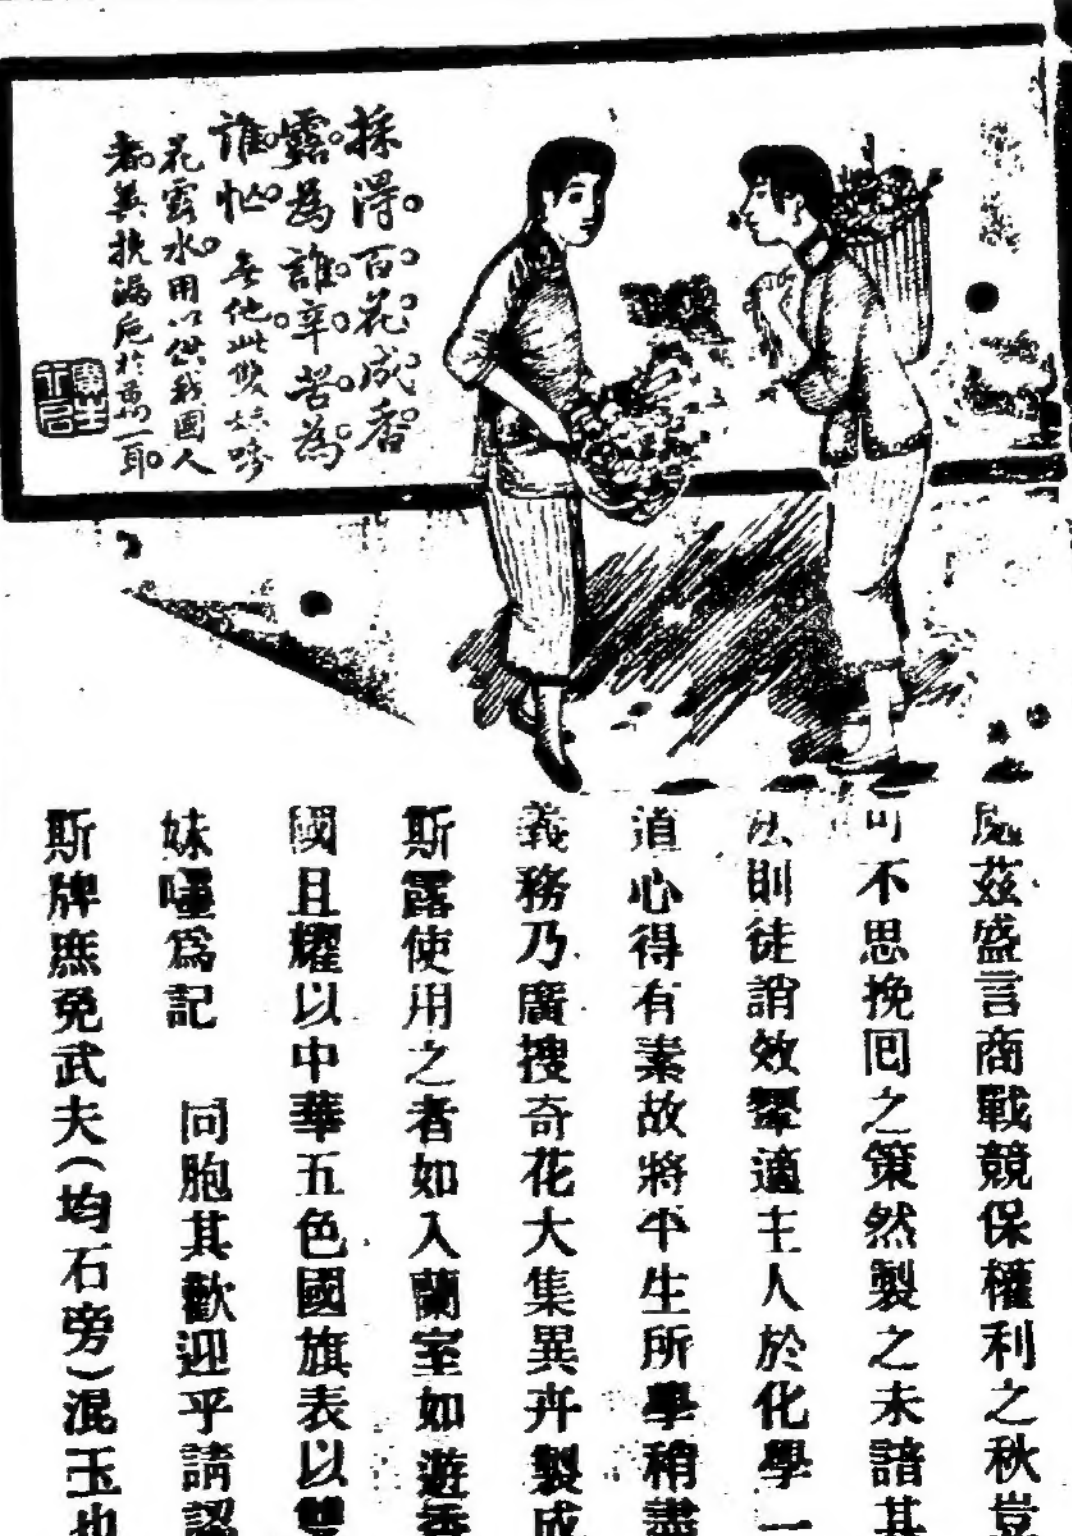 採得百花成香
露為誰辛苦為
誰忙 無他此雙妹嘜
花露水用以供我國人
者兼挽漏巵於萬一耳
處茲盛言商戰競保權利之秋豈
可不思挽回之策然製之未諳其
法則徒誚效顰適主人於化學一
道心得有素故將平生所學稍盡
義務乃廣搜奇花大集異卉製成
斯露使用之者如入蘭室如遊香
國且耀以中華五色國旗表以雙
妹嘜為記 同胞其歡迎乎請認
斯牌庶免武夫(均石旁)混玉也